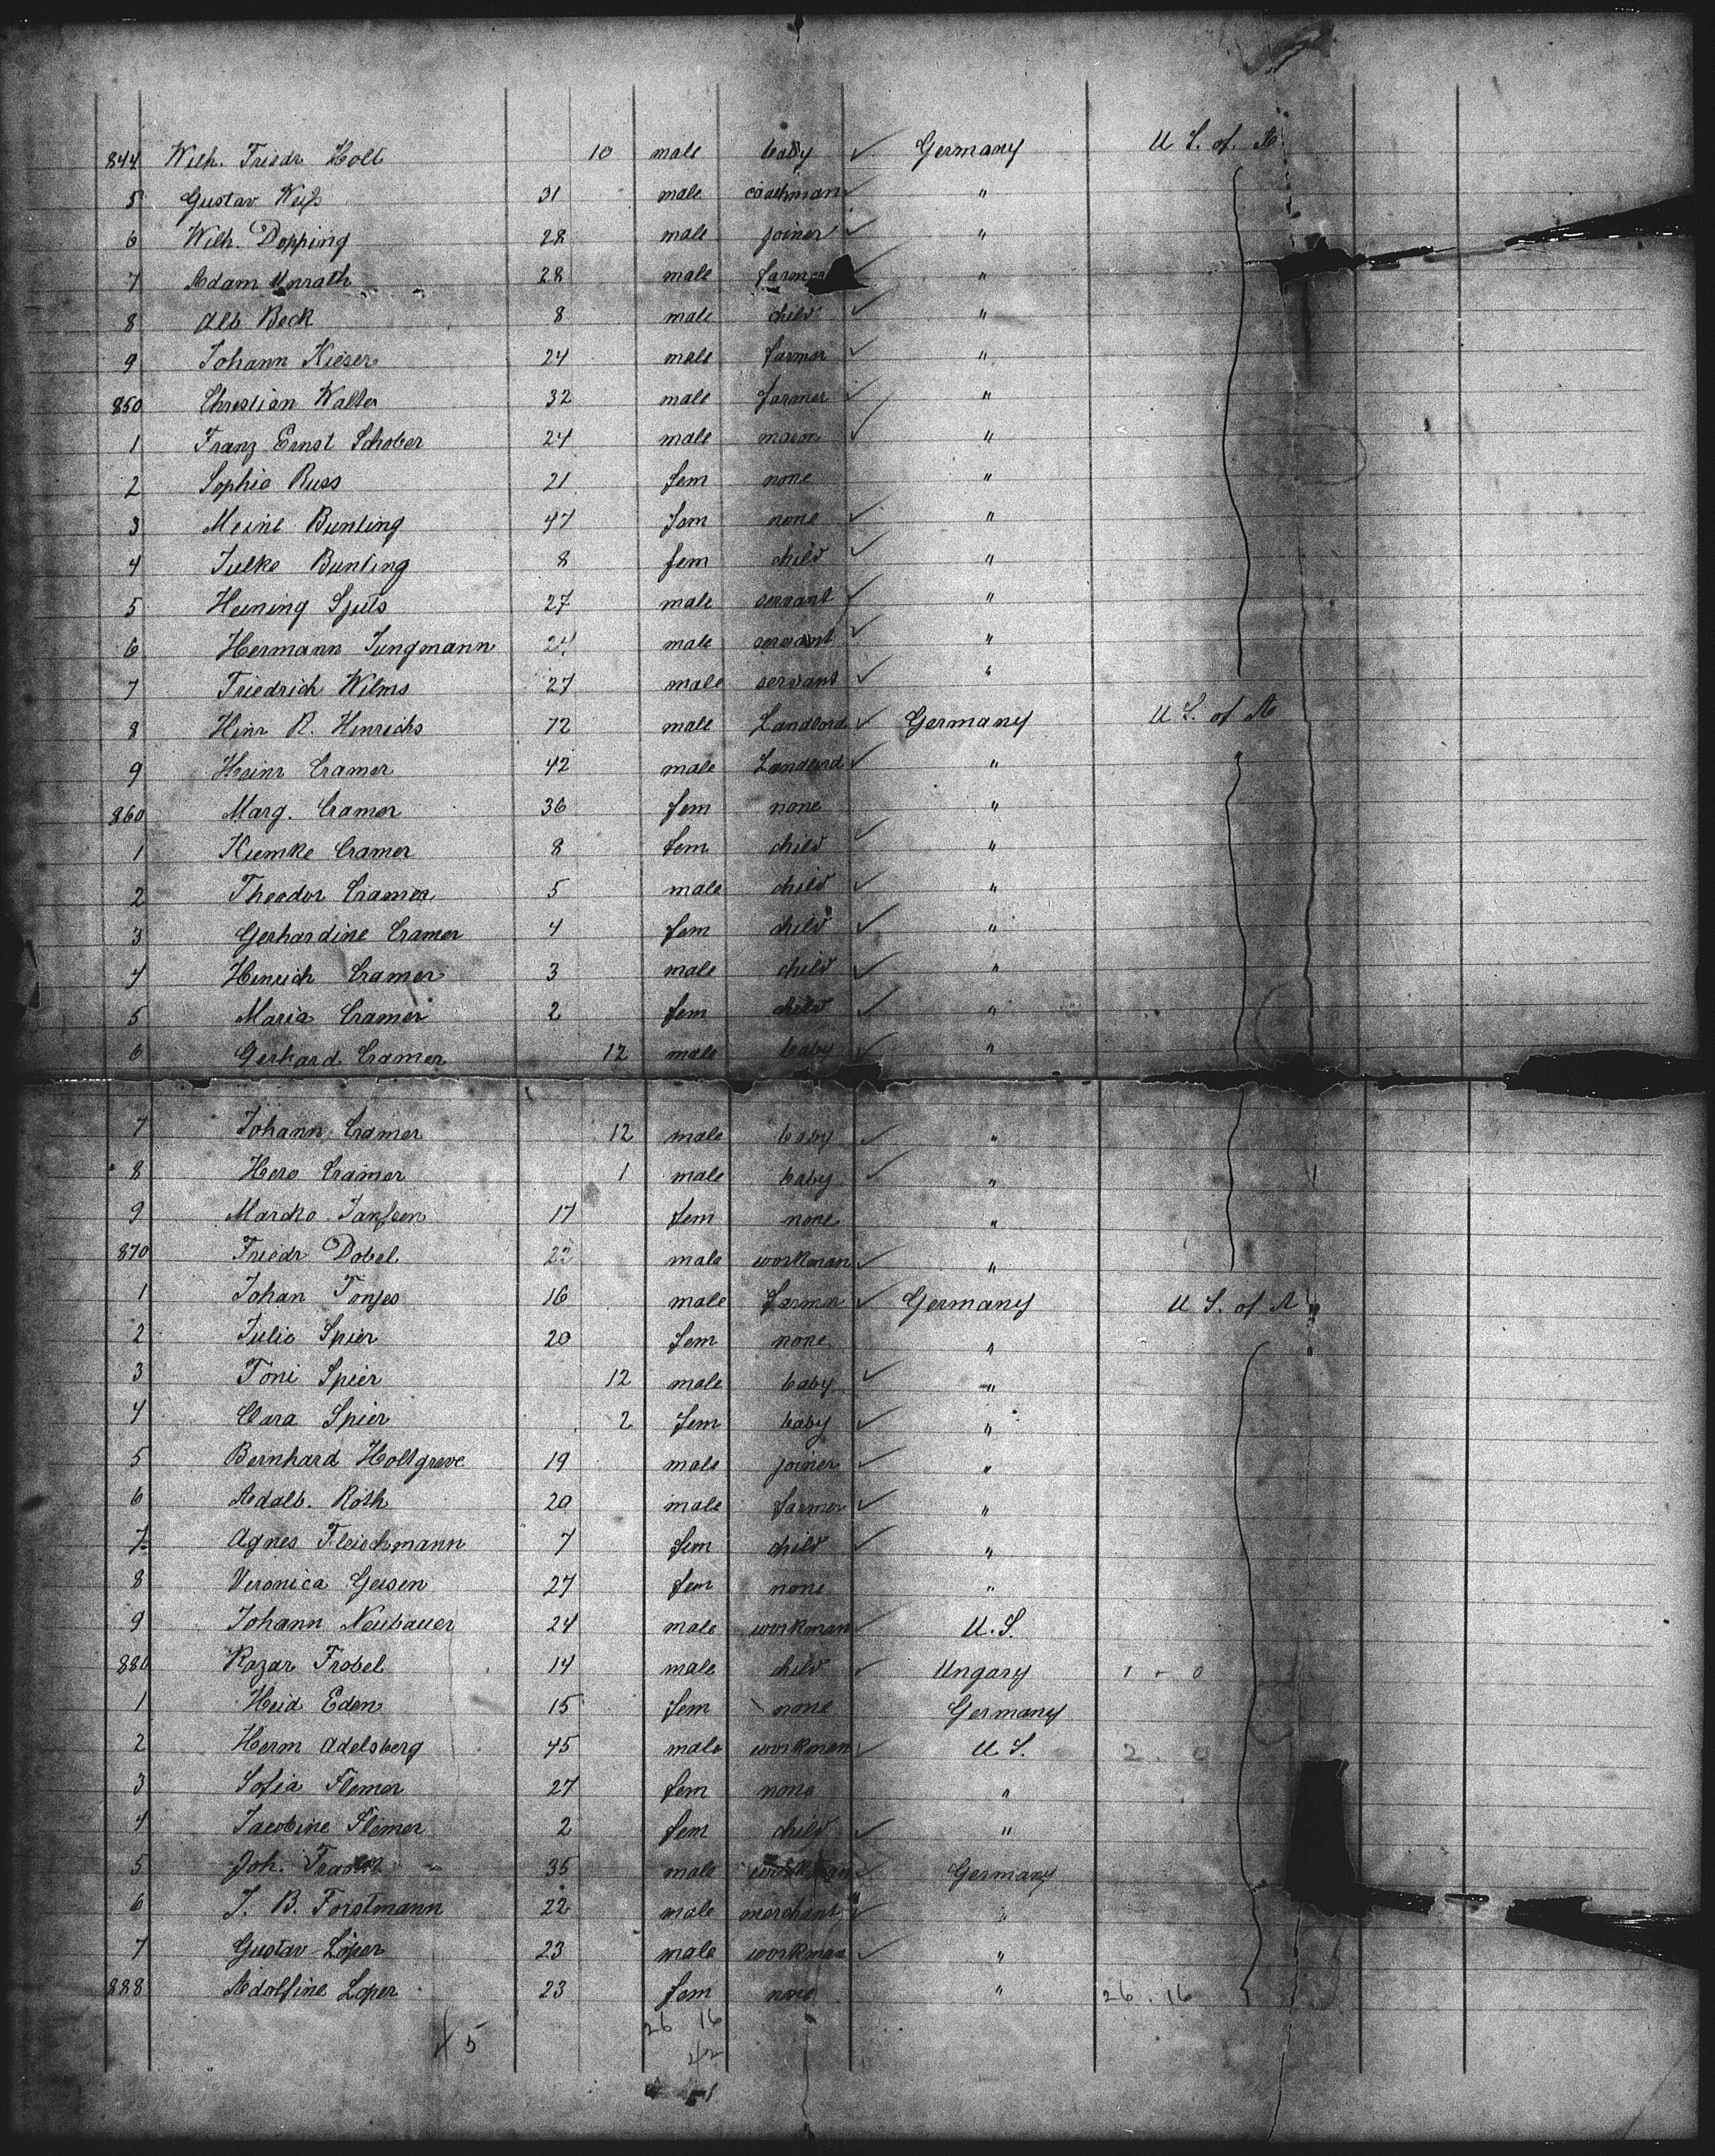 844 Wilh. Friedr Holt 10 male baby ✓ Germany U S. of A.
5 Gustav Weiß 31 male coachman ✓ "
6 Wilh. Dopping 28 male joiner ✓ "
7 Adam Unrath 28 male farmer ✓ "
8 Alb Beck 8 male child ✓ "
9 Johann Kieser 24 male farmer ✓ "
850 Christian Walter 32 male farmer ✓ "
1 Franz Ernst Schober 24 male mason ✓ "
2 Sophie Russ 21 fem none "
3 Meint Bunting 47 fem none ✓ "
4 Julke Bunting 8 fem child ✓ "
5 Heining Sjuts 27 male servant ✓ "
6 Hermann Jungmann 24 male servant ✓ "
7 Friedrich Wilms 27 male servant ✓ "
8 Hinr R. Hinrichs 72 male Landlord ✓ Germany U S. of A
9 Heinr Cramer 42 male Landlord ✓ "
860 Marg. Cramer 36 fem none "
1 Kiemke Cramer 8 fem child ✓ "
2 Theodor Cramer 5 male child ✓ "
3 Gerhardine Cramer 4 fem child ✓ "
4 Hinrich Cramer 3 male child ✓ "
5 Maria Cramer 2 fem child ✓ "
6 Gerhard Cramer 12 male baby ✓ "
7 Johann Cramer 12 male baby ✓ "
8 Hero Cramer 1 male baby ✓ "
9 Marcko Janßen 17 fem none "
870 Friedr Dobel male workman ✓ "
1 Johan Tonjes 16 male farmer ✓ Germany U S. of A
2 Julie Spier 20 fem none "
3 Toni Spier 12 male baby ✓ "
4 Clara Spier 2 fem baby ✓ "
5 Bernhard Holtgreve 19 male joiner ✓ "
6 Adalb. Roth 20 male farmer ✓ "
7 Agnes Fleischmann 7 fem child ✓ "
8 Veronica Geisen 27 fem none "
9 Johann Neubauer 24 male workman ✓ U.S.
880 Rozar Frobel 14 male child ✓ Ungary 1 - 0
1 Heid Eden 15 fem none Germany
2 Herm Adelsberg 45 male workman ✓ U S. 2 . 0
3 Sofia Flemer 27 fem none "
4 Jacobine Flemer 2 fem child ✓ "
5 Joh. 35 male workman ✓ Germany
6 J. B. Forstmann 22 male merchant ✓ "
7 Gustav Löper 23 male workman ✓ "
888 Adolfine Loper 23 fem none " 26 . 16
5 26 16
42